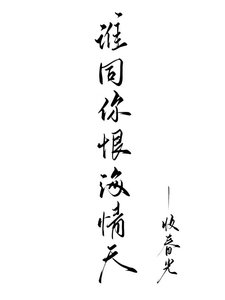 谁同你恨海情天
—收春光